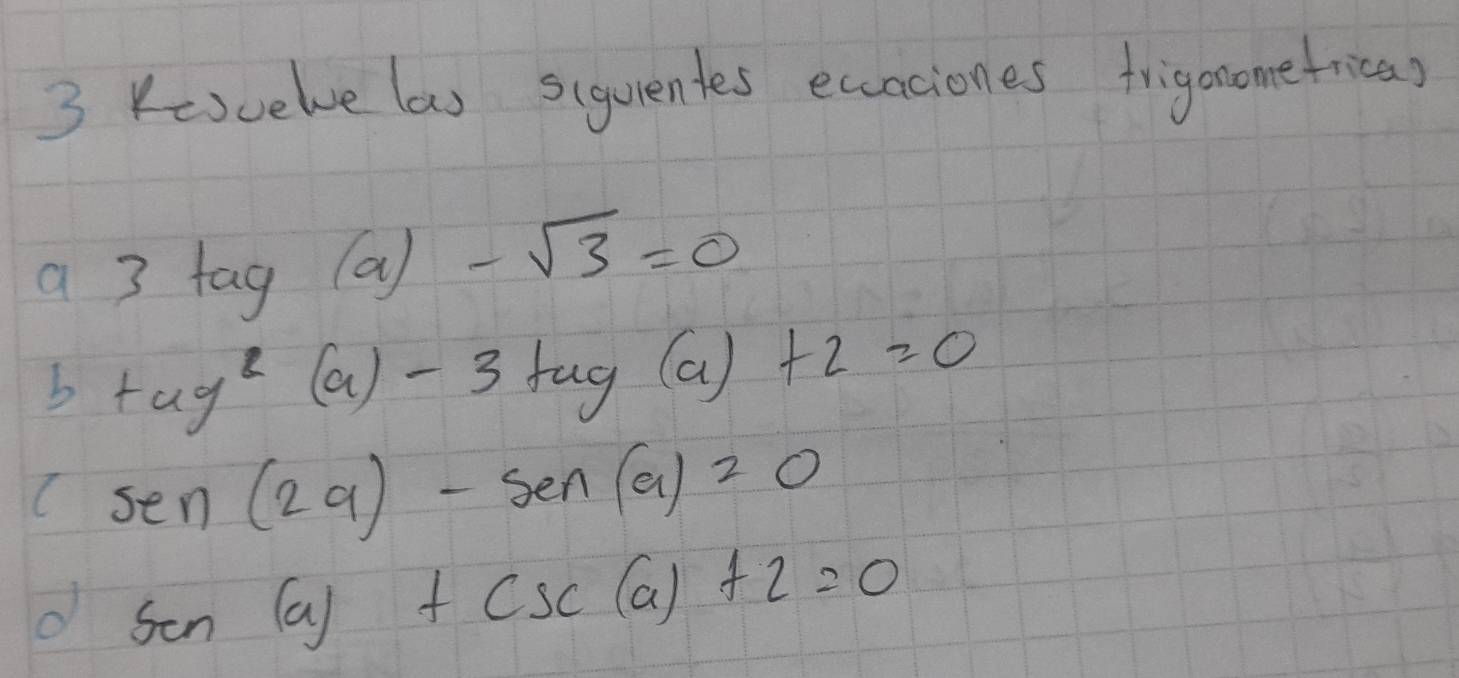 3 Resuelve las siguientes ecuaciones trigonometricas
a 3 tag (a) - √3 = 0
b tag² (a) - 3 tag (a) + 2 = 0
c sen (2a) - sen (a) = 0
d sen (a) + csc (a) + 2 = 0